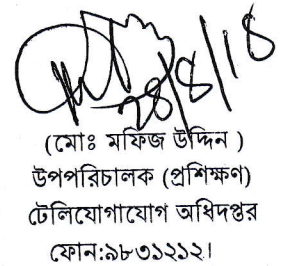 ২৪/৪/১৮
(মোঃ মফিজ উদ্দিন )
উপপরিচালক (প্রশিক্ষণ)
টেলিযোগাযোগ অধিদপ্তর
ফোন:৯৮৩১২১২।